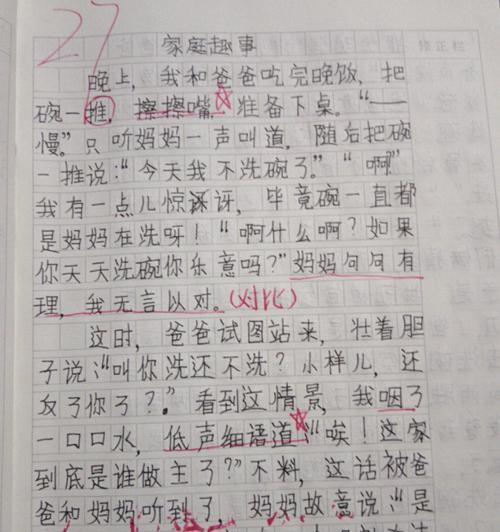 27
家庭趣事
晚上，我和爸爸吃完晚饭，把
碗一推，擦擦嘴，准备下桌。“——
慢。”只听妈妈一声叫道，随后把碗
一推说：“今天我不洗碗了。”“啊！”
我有一点儿惊讶，毕竟碗一直都
是妈妈在洗呀！“啊什么啊？如果
你天天洗碗你乐意吗？”妈妈句句有
理，我无言以对。（对比）
这时，爸爸试图站来，壮着胆
子说：“叫你洗还不洗？小样儿，还
反了你了？。”看到这情景，我咽了
一口口水，低声细语道：“唉！这家
到底是谁做主了？”不料，这话被爸
爸和妈妈听到了，妈妈故意说：“是